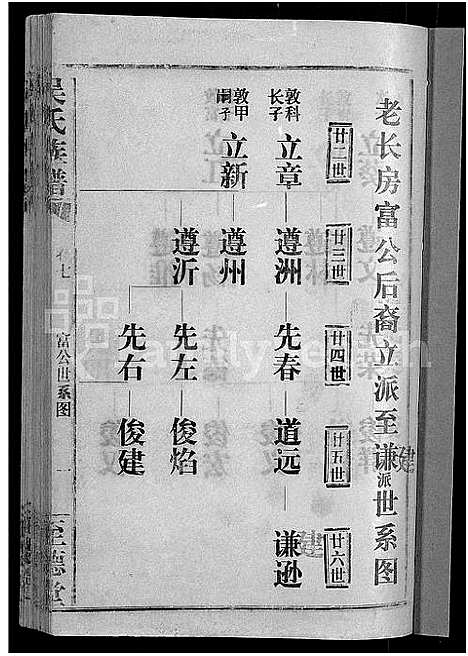 老长房富公后裔立派至谦派世系图
建
廿二世
廿三世
廿四世
廿五世
廿六世
敦科长子
立章
遵洲
先春
道远
谦逊
建
敦甲嗣子
立新
遵州
遵沂
先左
俊焰
先右
俊建
吴氏族谱
卷七
富公世系图
一
至德堂